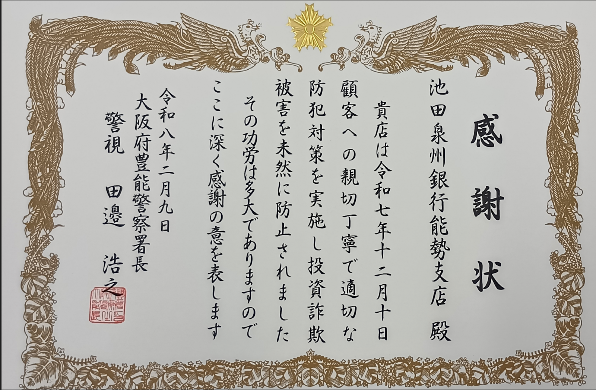 感謝状
池田泉州銀行能勢支店 殿
貴店は令和七年十二月十日
顧客への親切丁寧で適切な
防犯対策を実施し投資詐欺
被害を未然に防止されました
その功労は多大でありますので
ここに深く感謝の意を表します
令和八年二月九日
大阪府豊能警察署長
警視 田邉 浩之